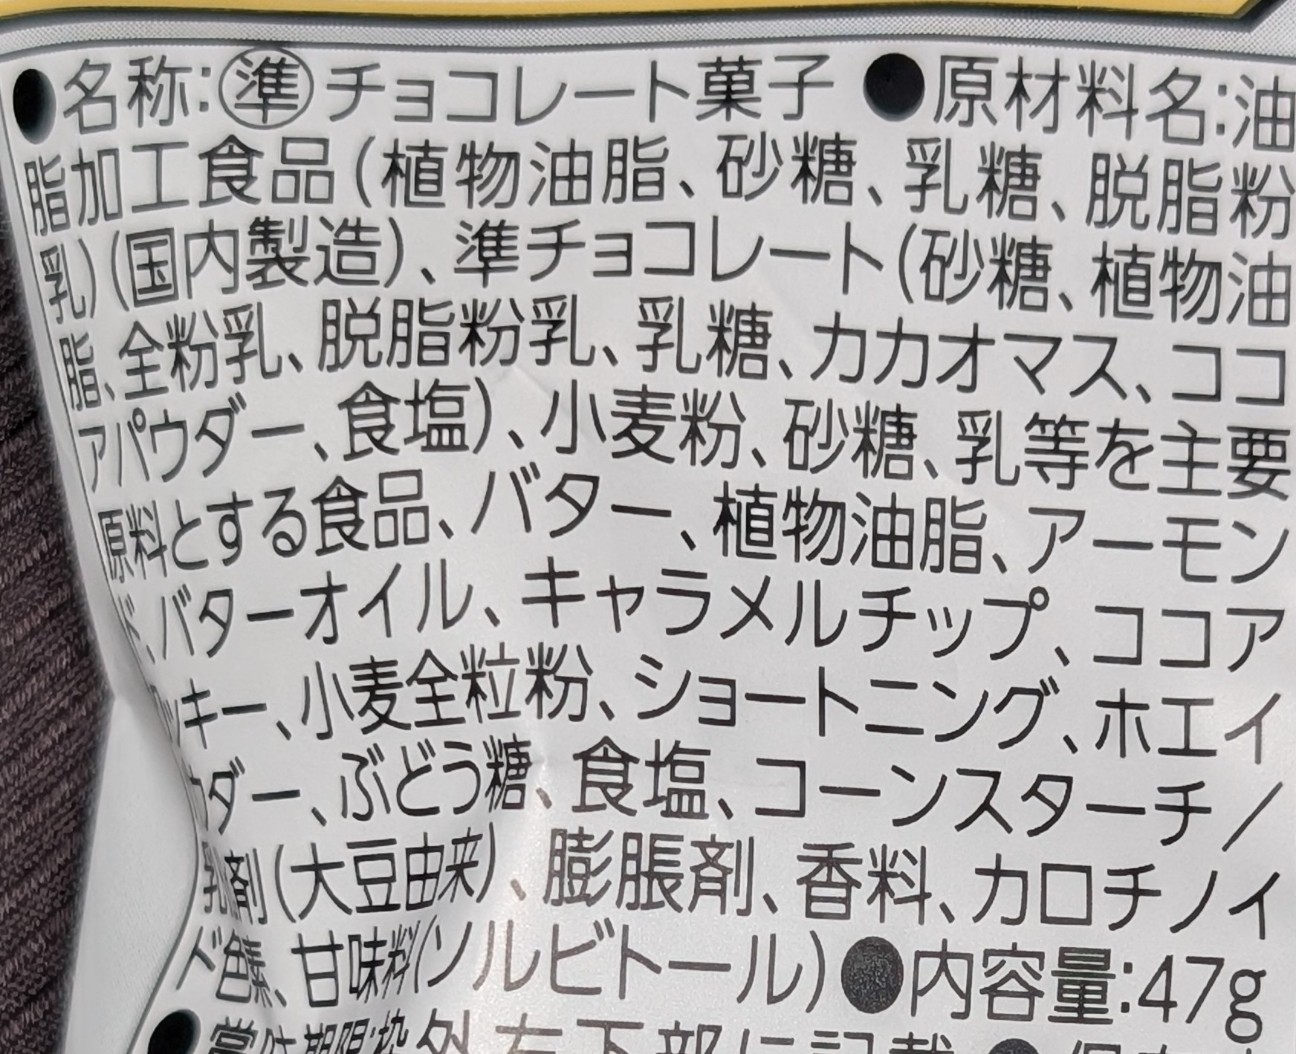 ●名称:㊝チョコレート菓子 ●原材料名:油
脂加工食品(植物油脂、砂糖、乳糖、脱脂粉
乳)(国内製造)、準チョコレート(砂糖、植物油
脂、全粉乳、脱脂粉乳、乳糖、カカオマス、ココ
アパウダー、食塩)、小麦粉、砂糖、乳等を主要
原料とする食品、バター、植物油脂、アーモン
ド、バターオイル、キャラメルチップ、ココア
クッキー、小麦全粒粉、ショートニング、ホエイ
パウダー、ぶどう糖、食塩、コーンスターチ/
乳剤(大豆由来)、膨脹剤、香料、カロチノイ
ド色素、甘味料(ソルビトール) ●内容量:47g
●賞味期限:枠外右下部に記載 ●保